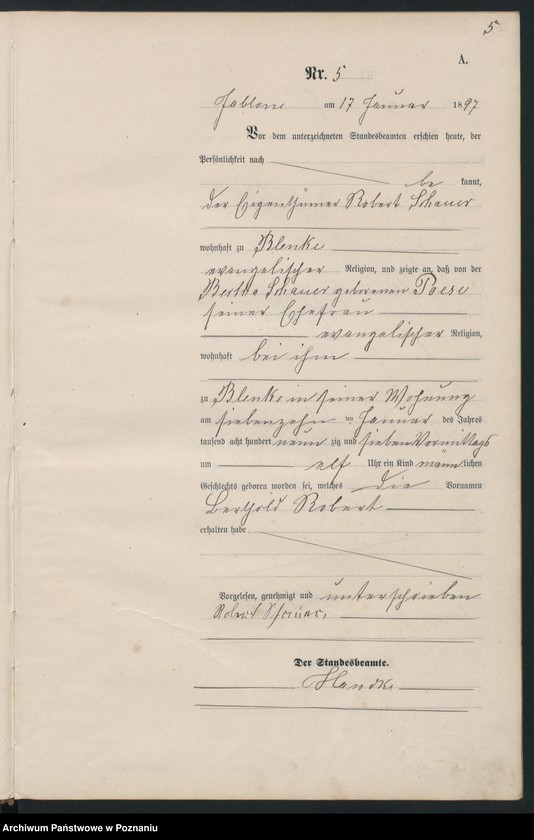 5
A.
Nr. 5
Jablone am 17 Januar 1897
Vor dem unterzeichneten Standesbeamten erschien heute, der
Persönlichkeit nach
be kannt,
der Eigenthümer Robert Schauer
wohnhaft zu Blenke
evangelischer Religion, und zeigte an, daß von der
Bertha Schauer geborenen Poese
seiner Ehefrau
evangelischer Religion,
wohnhaft bei ihm
zu Blenke in seiner Wohnung
am siebenzehn ten Januar des Jahres
tausend acht hundert neun zig und sieben Vormittags
um elf Uhr ein Kind männlichen
Geschlechts geboren worden sei, welches die Vornamen
Berthold Robert
erhalten habe
Vorgelesen, genehmigt und unterschrieben
Robert Schauer,
Der Standesbeamte.
Archiwum Państwowe w Poznaniu